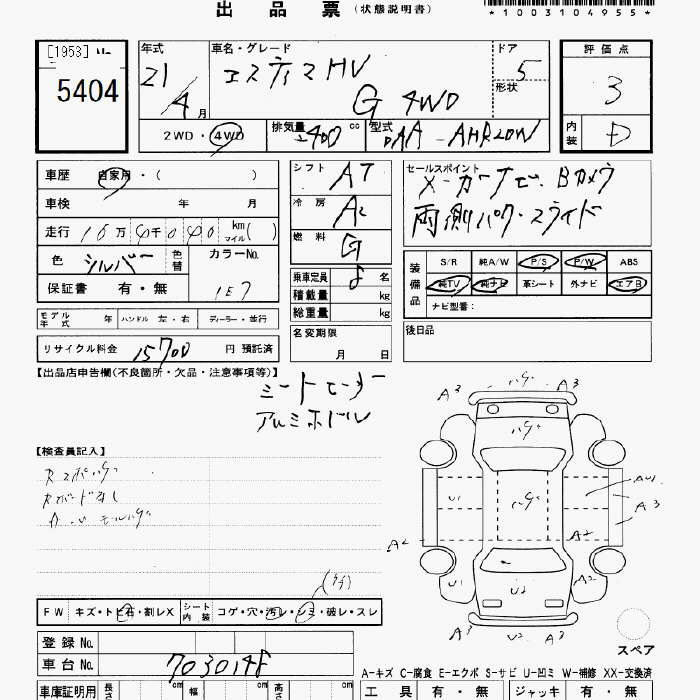 出品票 (状態説明書)
*1003104955*
[1953]
5404
年式 21/4月
車名・グレード エスティマHV
G 4WD
ドア 5
形状
評価点 3
内装 D
2WD・4WD 排気量 2400 cc 型式 DAA-AHR20W
車歴 自家用・( )
車検 年 月
走行 16万 4千 0 4 0 km マイル( )
色 シルバー 色替 カラーNo. 1E7
保証書 有・無
シフト AT
冷房 AC
燃料 G
乗車定員 8 名
積載量 kg
総重量 kg
名変期限 月 日
セールスポイント
メーカーナビ、Bカメラ
両側パワースライド
装備品 S/R 純A/W P/S P/W ABS
純TV 純ナビ 革シート 外ナビ エアB
ナビ型番:
後日品
モデル年式 年 ハンドル 左・右 ディーラー・並行
リサイクル料金 15700 円 預託済
【出品店申告欄(不良箇所・欠品・注意事項等)】
シートヒーター
アルミホイル
【検査員記入】
FW キズ・トビ石・割レX シート内装 コゲ・穴・汚レ・シミ・破レ・スレ
登録No.
車台No. 7030148
車庫証明用 長さ cm 幅 cm 高さ cm
A3 ハゲ A3
ハゲ
U1 ハゲ AU1
A3
A2 A2
U1 U2 A2
A3 U2 A3
スペア
A-キズ C-腐食 E-エクボ S-サビ U-凹ミ W-補修 XX-交換済
工具 有・無 ジャッキ 有・無